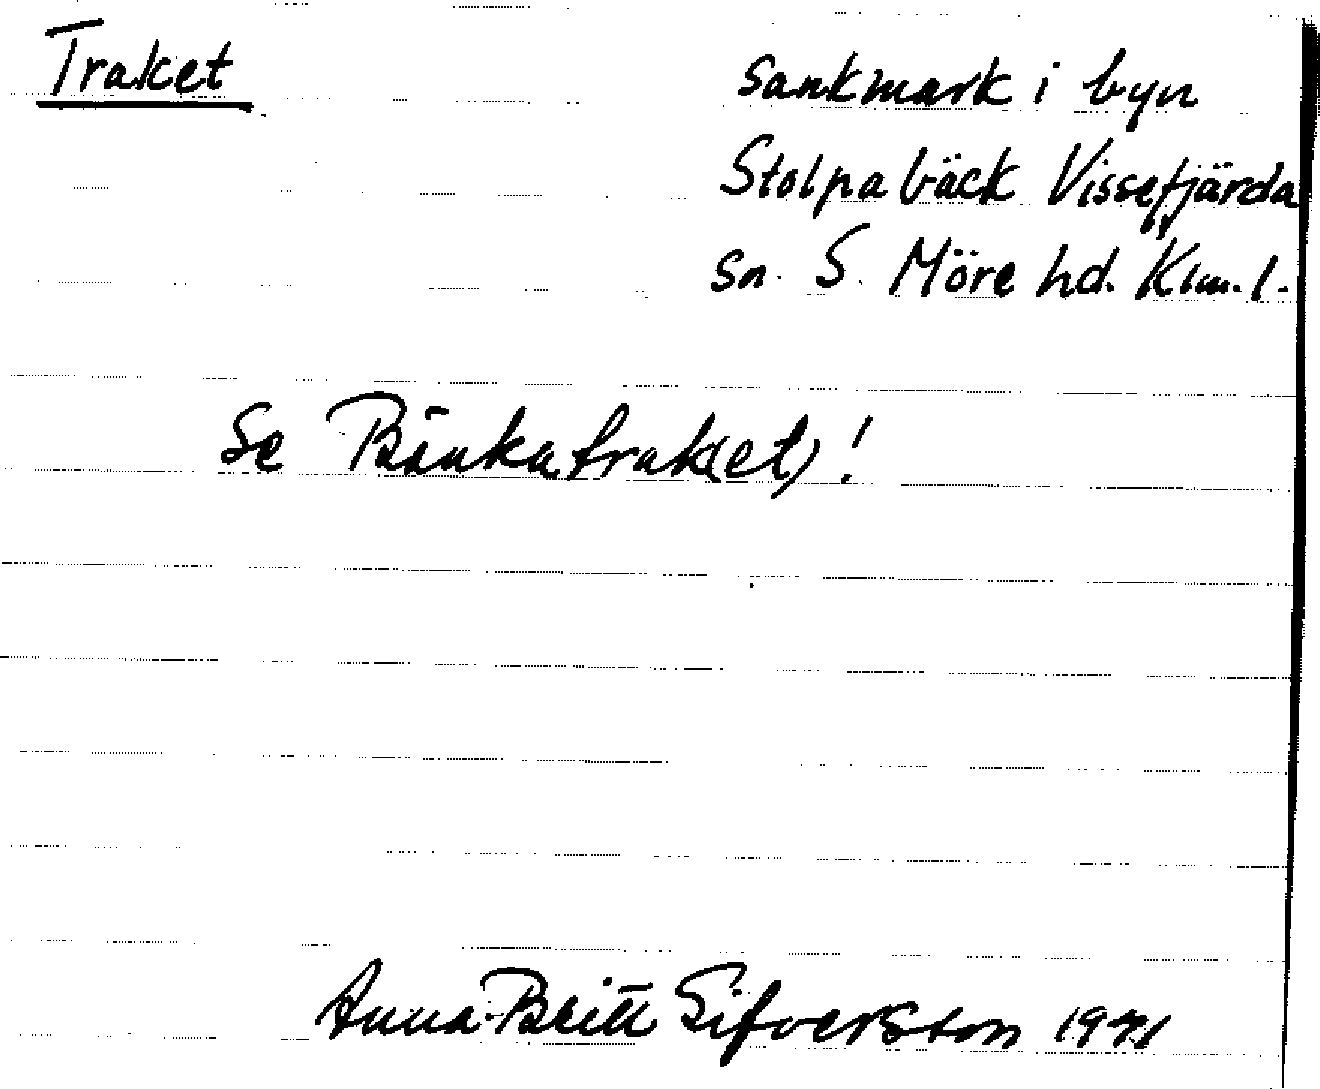 Traket
sankmark i byn
Stolpabäck Vissefjärda
sn. S. Möre hd. Klm. l.
Se Bänkatrak(et)!
Anna-Britt Sifversson 1971